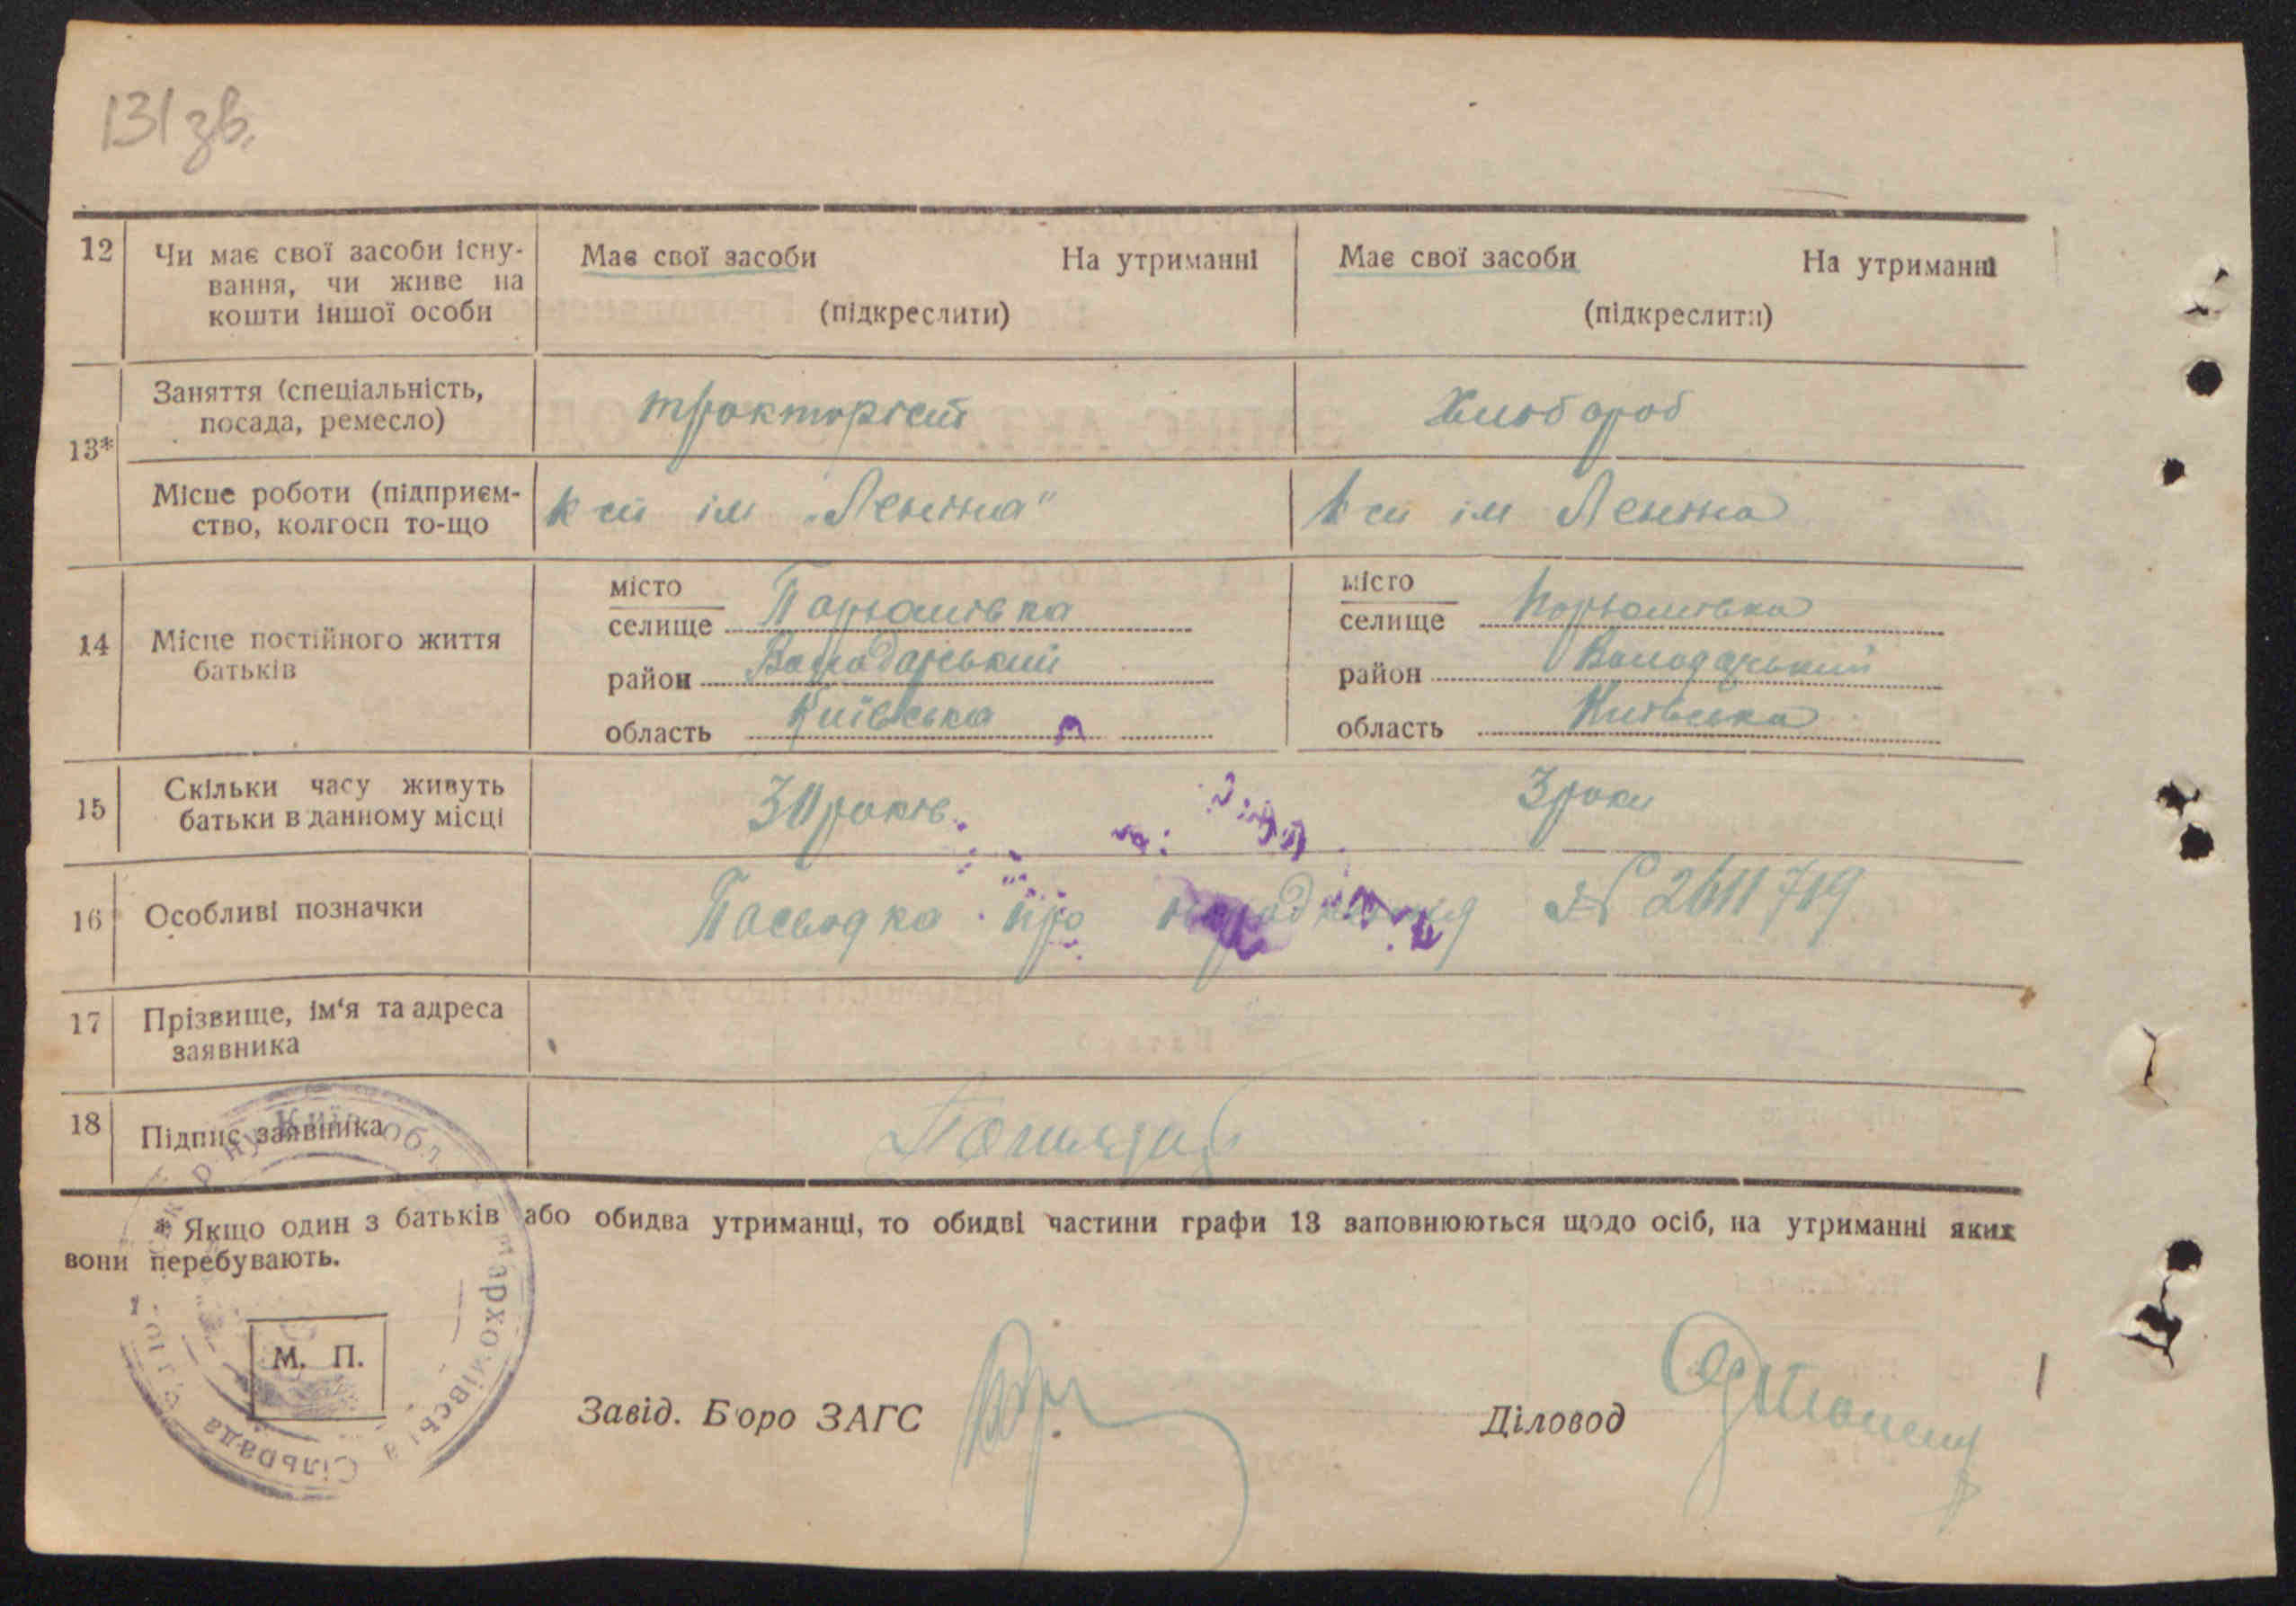 131 зв.
12 Чи має свої засоби існу-
вання, чи живе на
кошти іншої особи
Має свої засоби На утриманні
(підкреслити)
Має свої засоби На утриманні
(підкреслити)
13*
Заняття (спеціальність,
посада, ремесло)
тракторіст
Хлібороб
Місце роботи (підприєм-
ство, колгосп то-що
ім „Леніна"
ім Леніна
14 Місце постійного життя
батьків
місто
селище Пархомівка
район Володарський
область Київська
місто
селище Пархомівка
район Володарський
область Київська
15 Скільки часу живуть
батьки в данному місці
30 років
3 роки
16 Особливі позначки
Посьвідка про народження № 2611719
17 Прізвище, ім'я та адреса
заявника
18 Підпис заявника
* Якщо один з батьків або обидва утриманці, то обидві частини графи 13 заповнюються щодо осіб, на утриманні яких
вони перебувають.
М. П.
Київ обл
Пархомівська
Сільрада
Завід. Бюро ЗАГС
Діловод